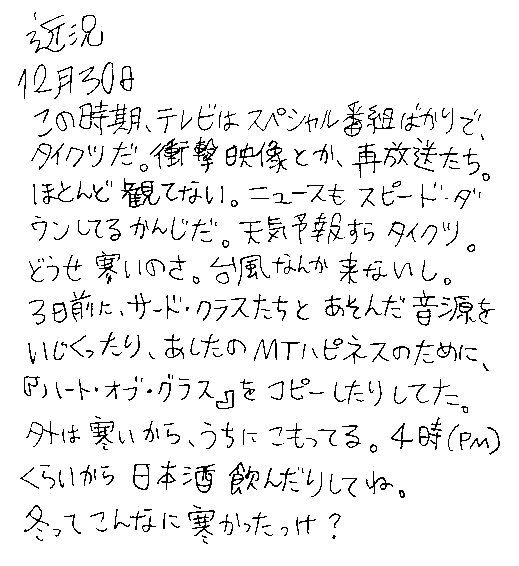 近況
12月30日
この時期、テレビはスペシャル番組ばかりで、
タイクツだ。衝撃映像とか、再放送たち。
ほとんど観てない。ニュースもスピード・ダ
ウンしてるかんじだ。天気予報すらタイクツ。
どうせ寒いのさ。台風なんか来ないし。
3日前に、サード・クラスたちとあそんだ音源を
いじくったり、あしたのMTハピネスのために、
『ハート・オブ・グラス』をコピーしたりしてた。
外は寒いから、うちにこもってる。4時(PM)
くらいから日本酒飲んだりしてね。
冬ってこんなに寒かったっけ?